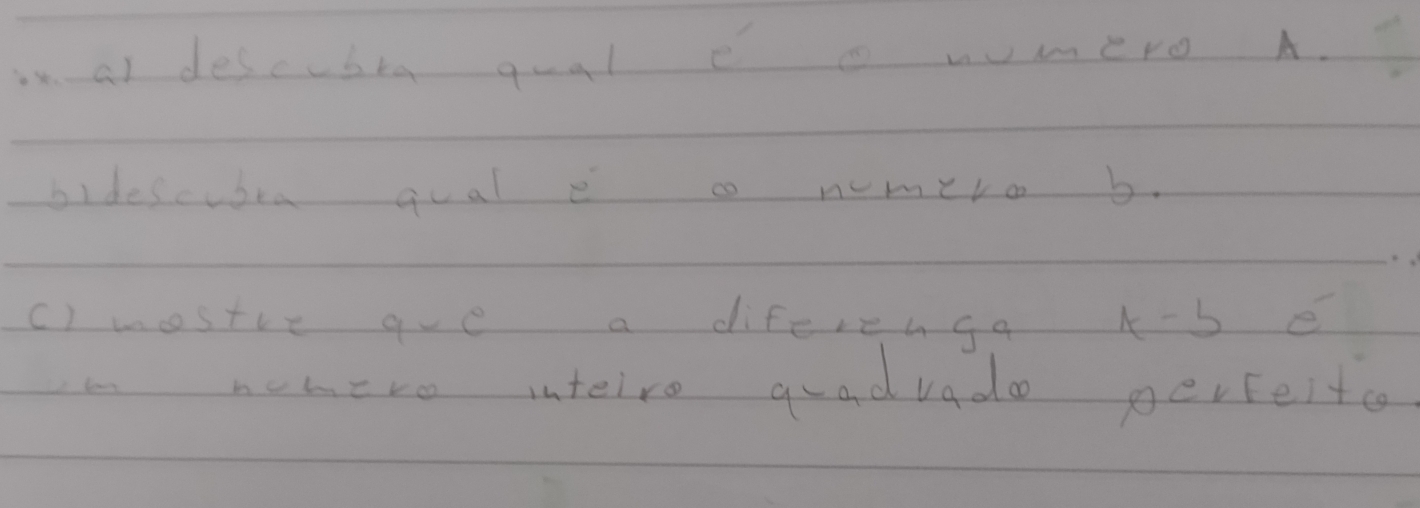 a) descubra qual é o numero A.
b) descubra qual é o numero b.
c) mostre que a diferença A-b é
um numero inteiro quadrado perfeito.